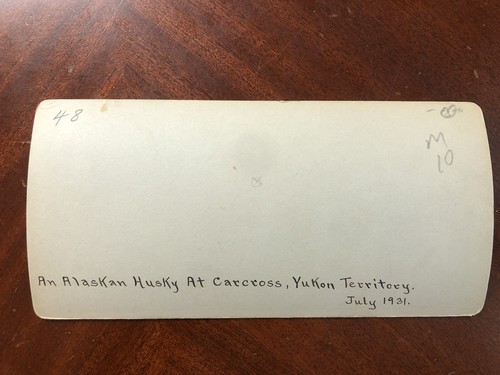 48
M
10
An Alaskan Husky At Carcross, Yukon Territory.
July 1931.